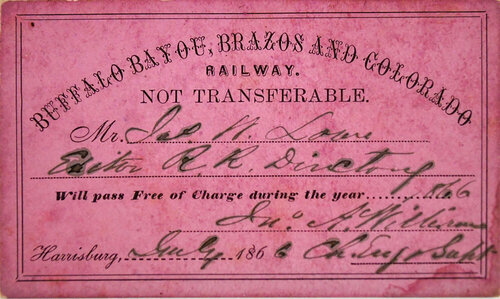 BUFFALO BAYOU, BRAZOS AND COLORADO
RAILWAY.
NOT TRANSFERABLE.
Mr. Jas. W. Lowe
Editor R. R. Directory
Will pass Free of Charge during the year 1866
Jno. A. Williams
Harrisburg, July 1866 Ch. Eng. & Supt